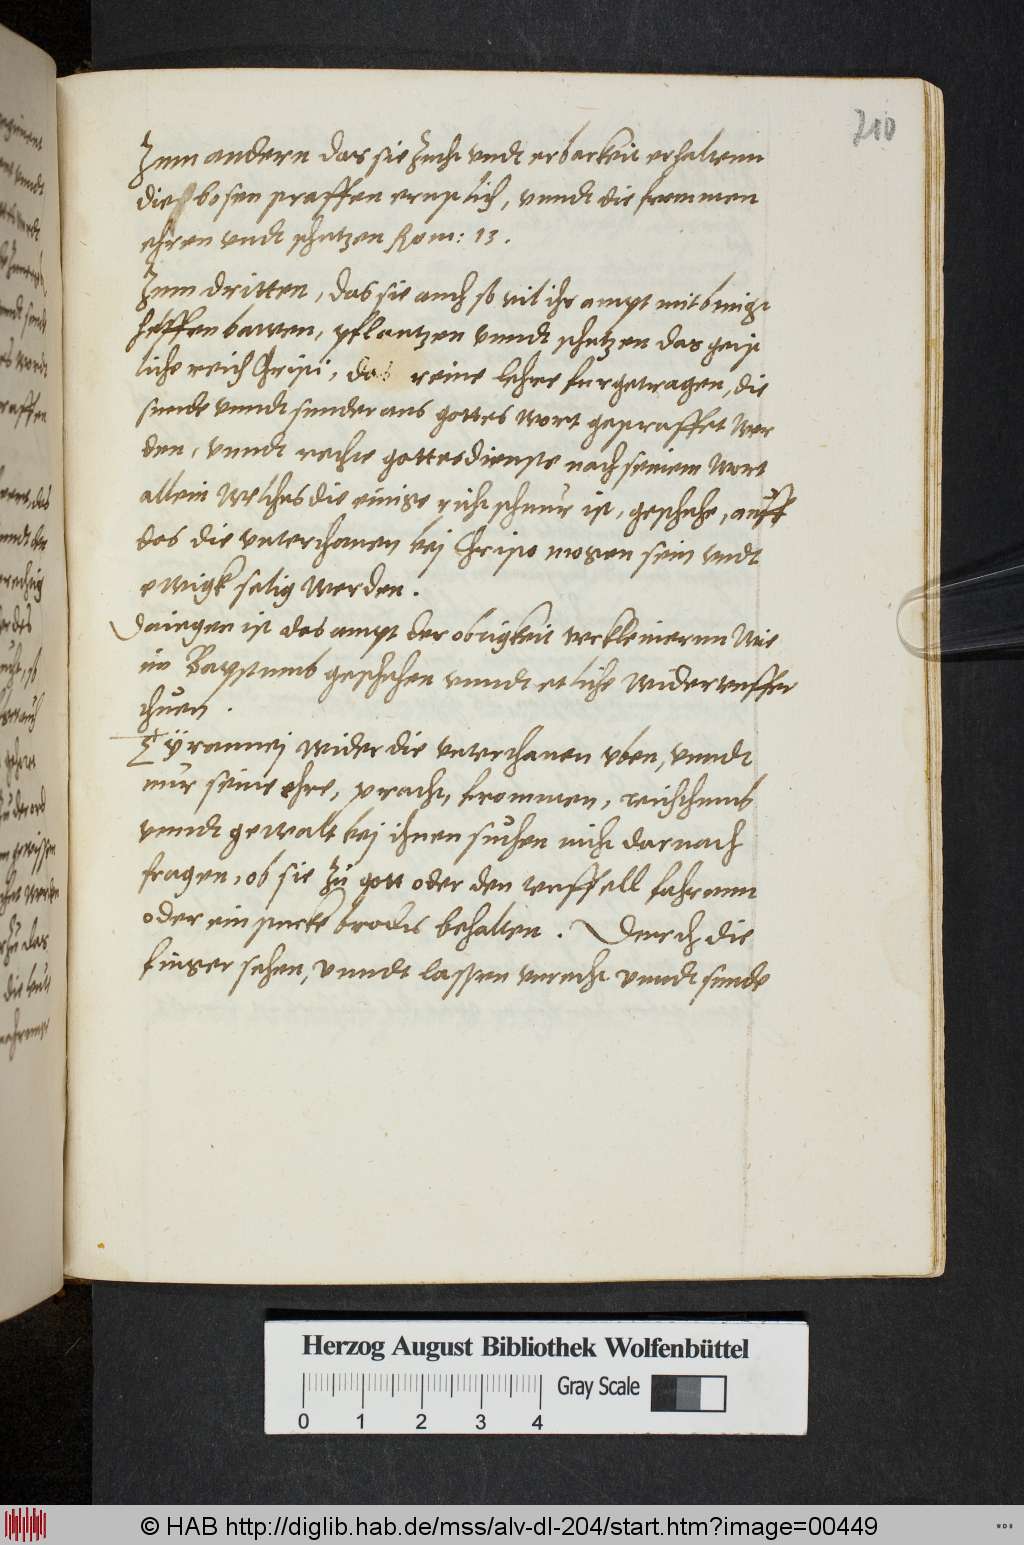 210
Zum andern das sie zucht undt erbarkeit erhaltenn
die bosen straffen ernstlich, unndt die frommen
ehren undt schutzen Rom: 13.
Zum dritten, das sie auch so vil ihr ampt mitbringt
helffen bawen, pflantzen unndt schutzen das geist
liche reich Christi, das reine lehre furgetragen, die
sunde unndt sunder aus gottes wort gestraffet wer
den, unndt rechte gottesdienste nach seinem wort
allein welches die einige richtschnur ist, geschehe, auff
das die unterthanen bej Christo mogen sein undt
ewigk selig werden.
Daiegen ist das ampt der obrigkeit verkleinernn wie
im Bapstumb geschehen unndt etliche widerteuffer
thuen.
Tÿrannej wider die unterthanen uben, unndt
nur seine ehre, pracht, frommen, reichthumb
unndt gewalt bej ihnen suchen nicht darnach
fragen, ob sie zu gott oder den teuffell fahrenn
oder ein stucke brodts behalten. Durch die
finger sehen, unndt lassen unrecht unndt sunde
Herzog August Bibliothek Wolfenbüttel
0 1 2 3 4
Gray Scale
© HAB http://diglib.hab.de/mss/alv-dl-204/start.htm?image=00449